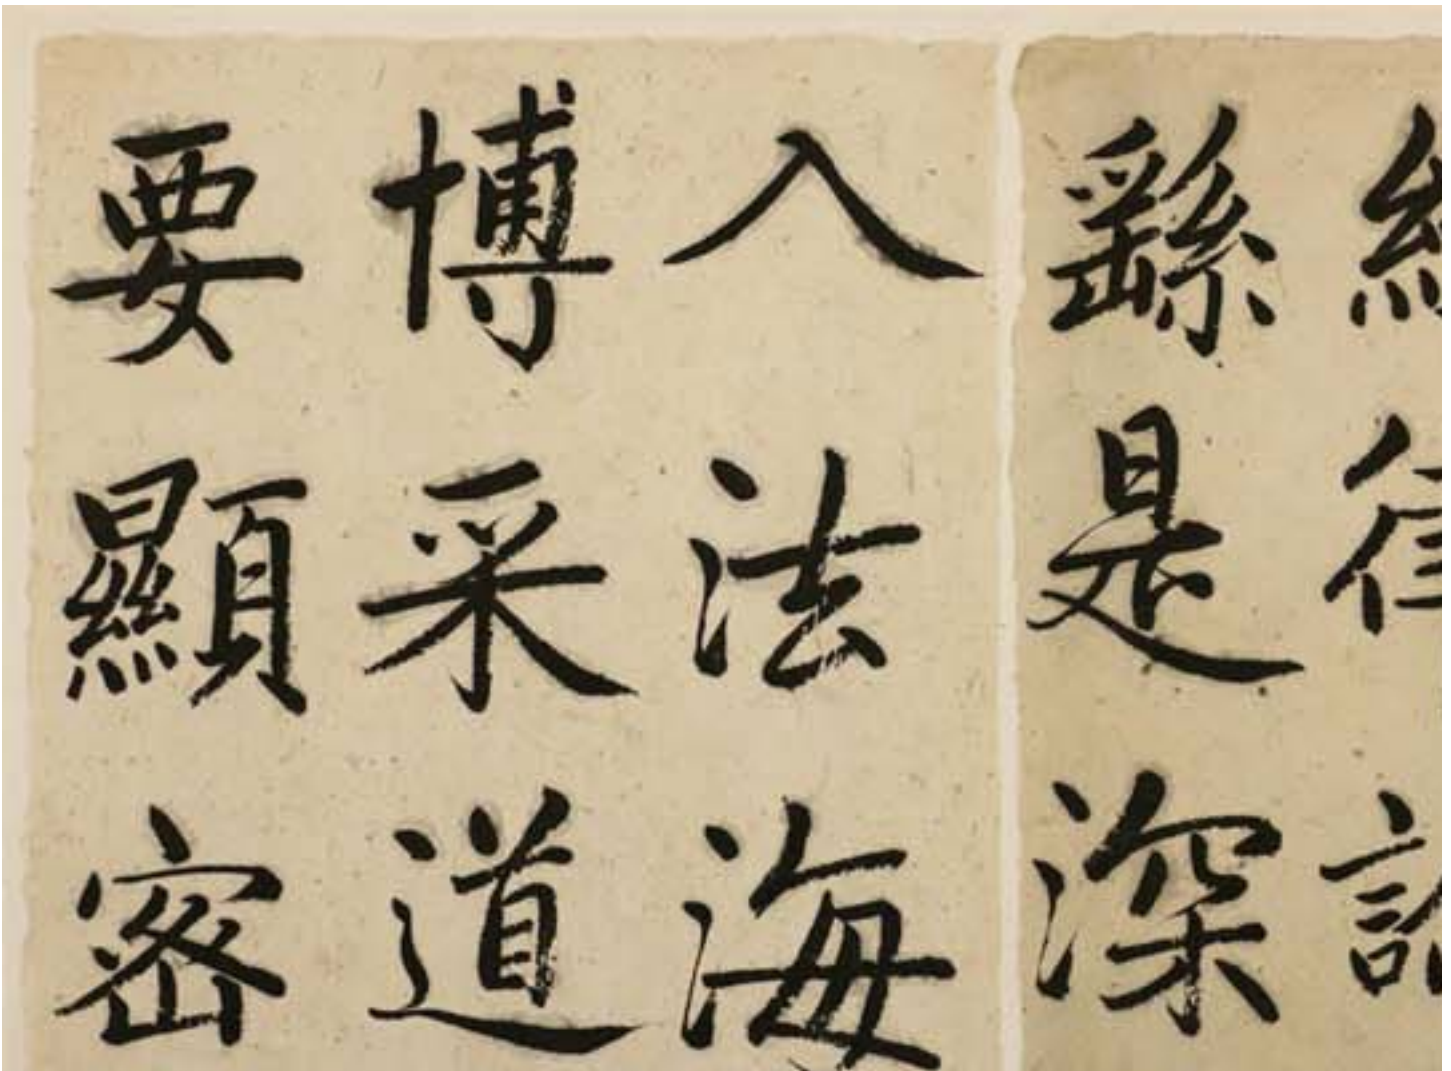 繇是深
入法海
博采道
要顯密